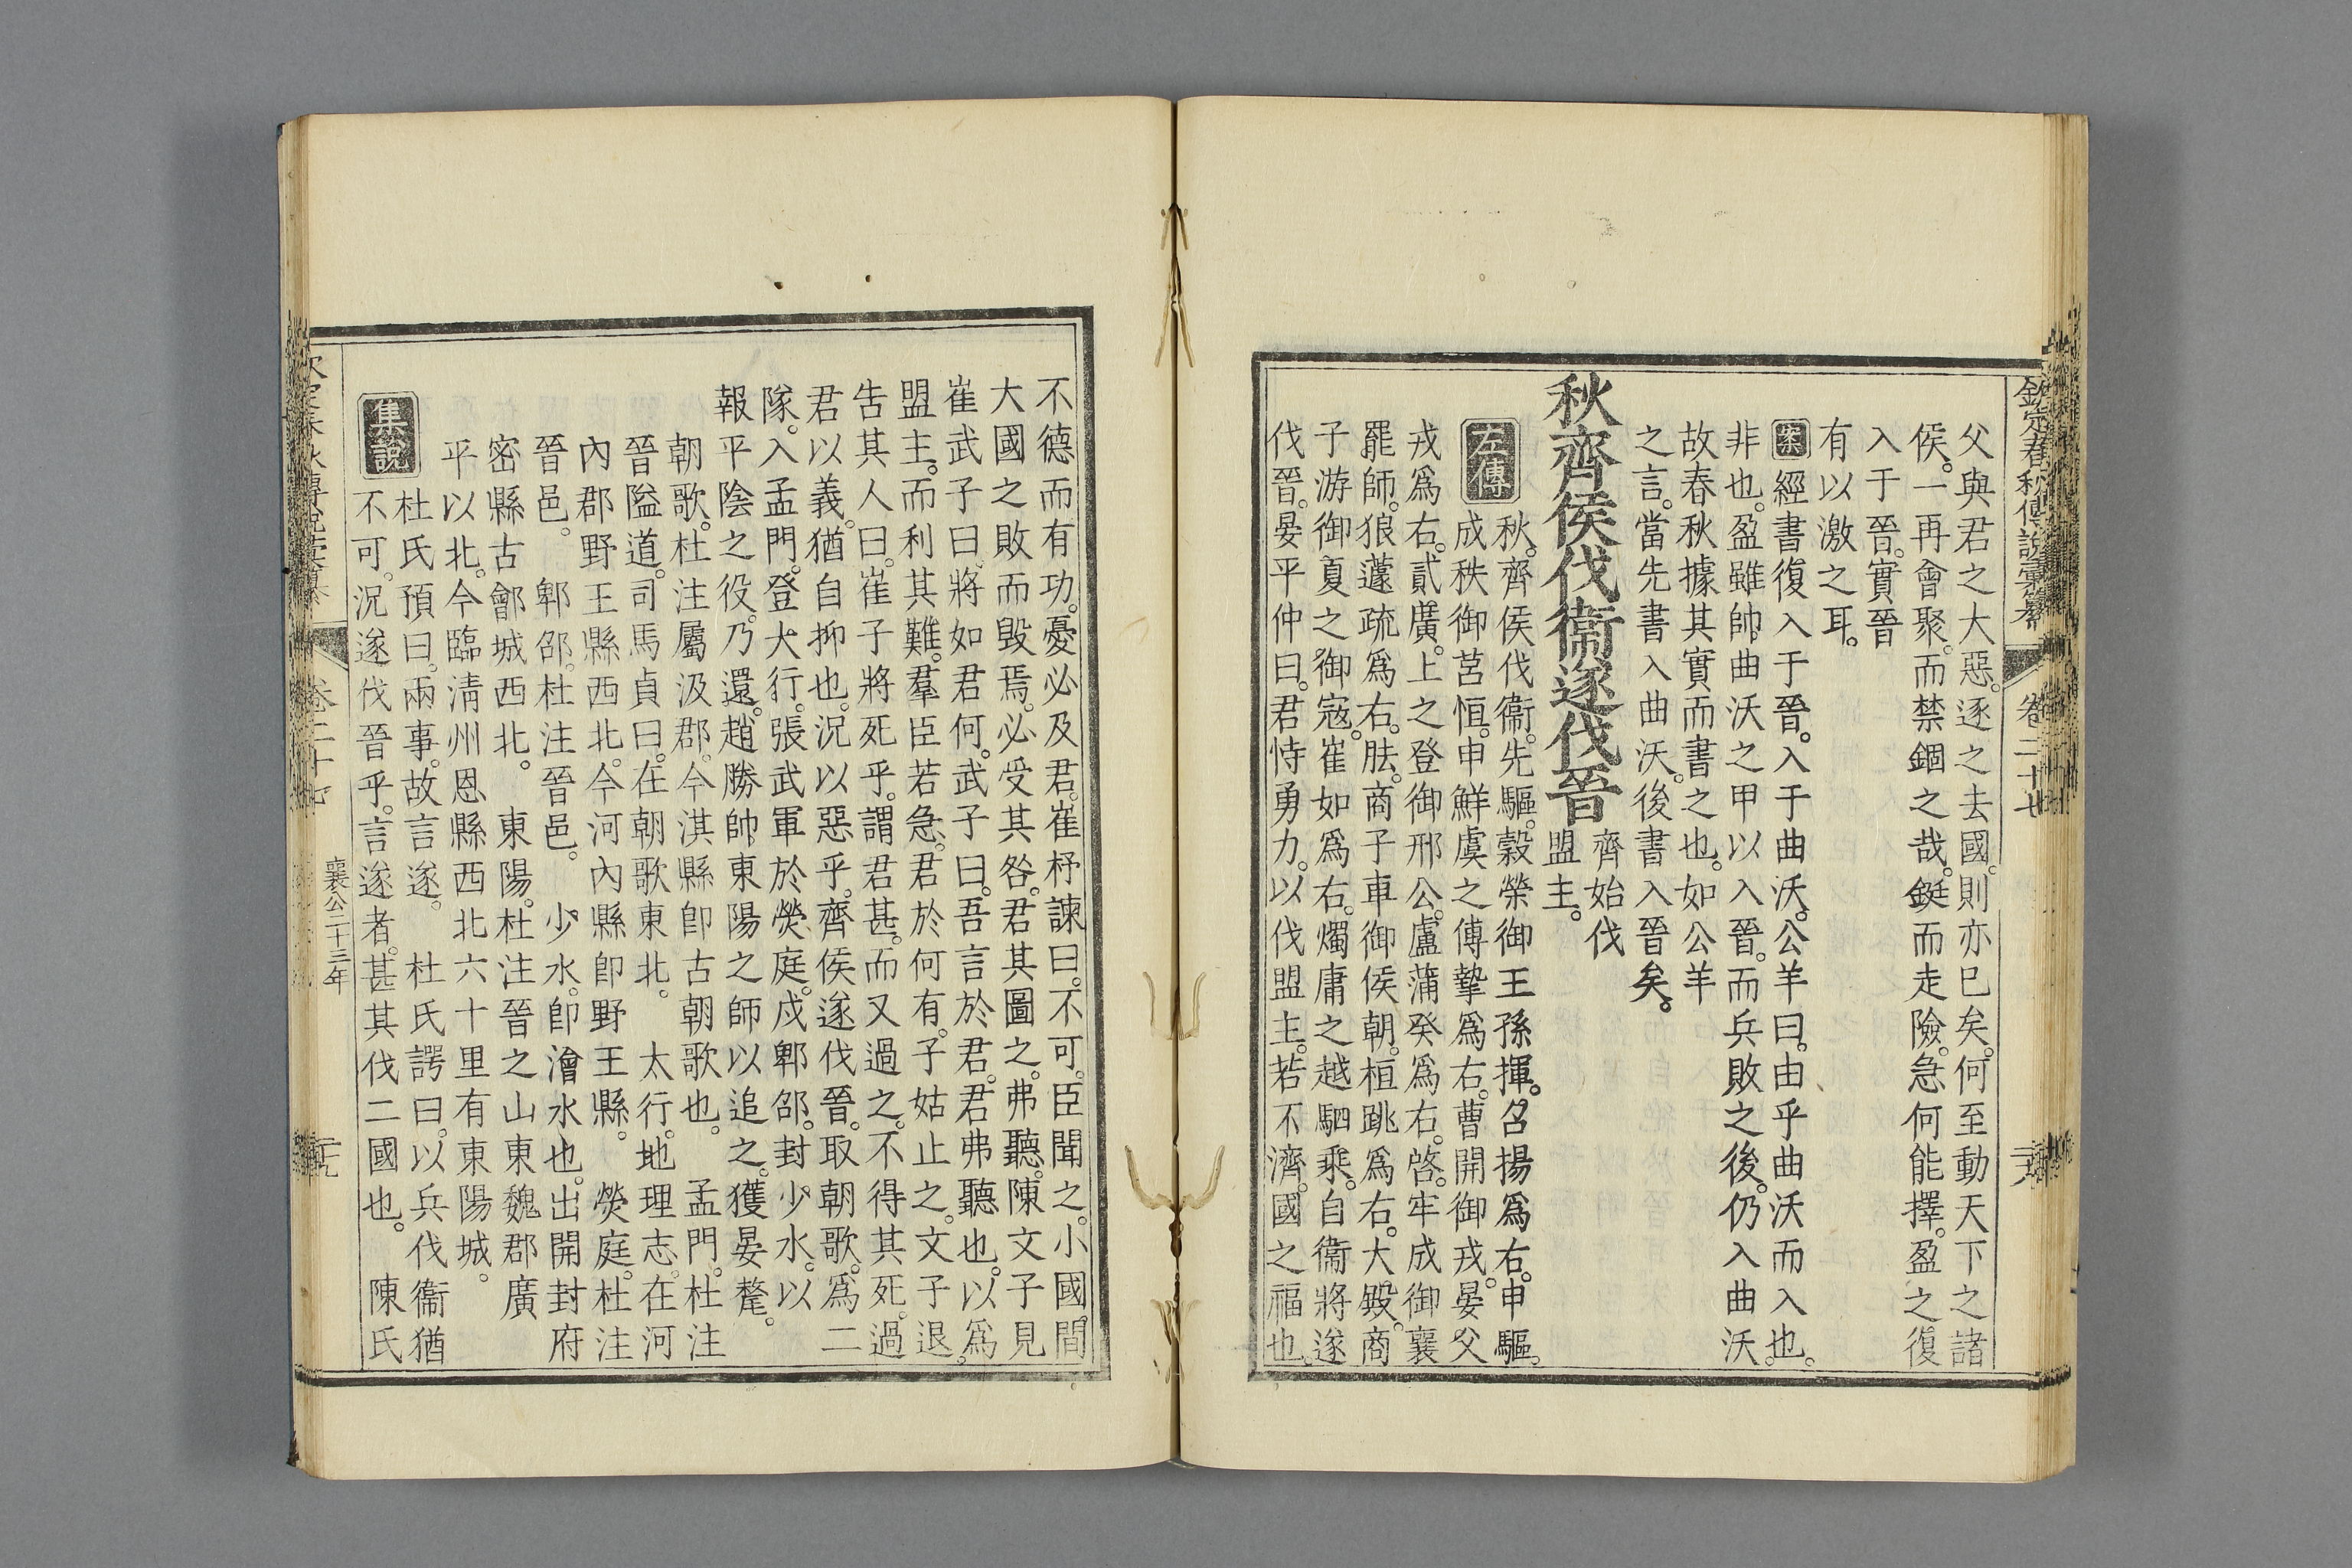 欽定春秋傳說彙纂 卷二十七 二十八
父與君之大惡。逐之去國。則亦已矣。何至動天下之諸
侯。一再會聚。而禁錮之哉。鋌而走險。急何能擇。盈之復
入于晉。實晉
有以激之耳。
案 經書復入于晉。入于曲沃。公羊曰。由乎曲沃而入也。
非也。盈雖帥曲沃之甲以入晉。而兵敗之後。仍入曲沃。
故春秋據其實而書之也。如公羊
之言。當先書入曲沃。後書入晉矣。
秋齊侯伐衞遂伐晉
齊始伐
盟主。
左傳 秋。齊侯伐衞。先驅。穀榮御王孫揮。召揚爲右。申驅。
成秩御莒恒。申鮮虞之傅摯爲右。曹開御戎。晏父
戎爲右。貳廣。上之登御邢公。盧蒲癸爲右。啓。牢成御襄
罷師。狼蘧疏爲右。胠。商子車御侯朝。桓跳爲右。大殿。商
子游御夏之御寇。崔如爲右。燭庸之越駟乘。自衞將遂
伐晉。晏平仲曰。君恃勇力。以伐盟主。若不濟。國之福也。
不德而有功。憂必及君。崔杼諫曰。不可。臣聞之。小國間
大國之敗而毀焉。必受其咎。君其圖之。弗聽。陳文子見
崔武子曰。將如君何。武子曰。吾言於君。君弗聽也。以爲
盟主。而利其難。羣臣若急。君於何有。子姑止之。文子退。
告其人曰。崔子將死乎。謂君甚。而又過之。不得其死。過
君以義。猶自抑也。況以惡乎。齊侯遂伐晉。取朝歌。爲二
隊。入孟門。登大行。張武軍於熒庭。戍郫邵。封少水。以
報平陰之役。乃還。趙勝帥東陽之師以追之。獲晏氂。
朝歌。杜注屬汲郡。今淇縣卽古朝歌也。 孟門。杜注
晉隘道。司馬貞曰。在朝歌東北。 太行。地理志。在河
內郡野王縣西北。今河內縣卽野王縣。 熒庭。杜注
晉邑。 郫邵。杜注晉邑。 少水。卽澮水也。出開封府
密縣古鄶城西北。 東陽。杜注晉之山東魏郡廣
平以北。今臨淸州恩縣西北六十里有東陽城。
集說 杜氏預曰。兩事。故言遂。 杜氏諤曰。以兵伐衞猶
不可。況遂伐晉乎。言遂者。甚其伐二國也。 陳氏
卷二十七 襄公二十三年 二十九